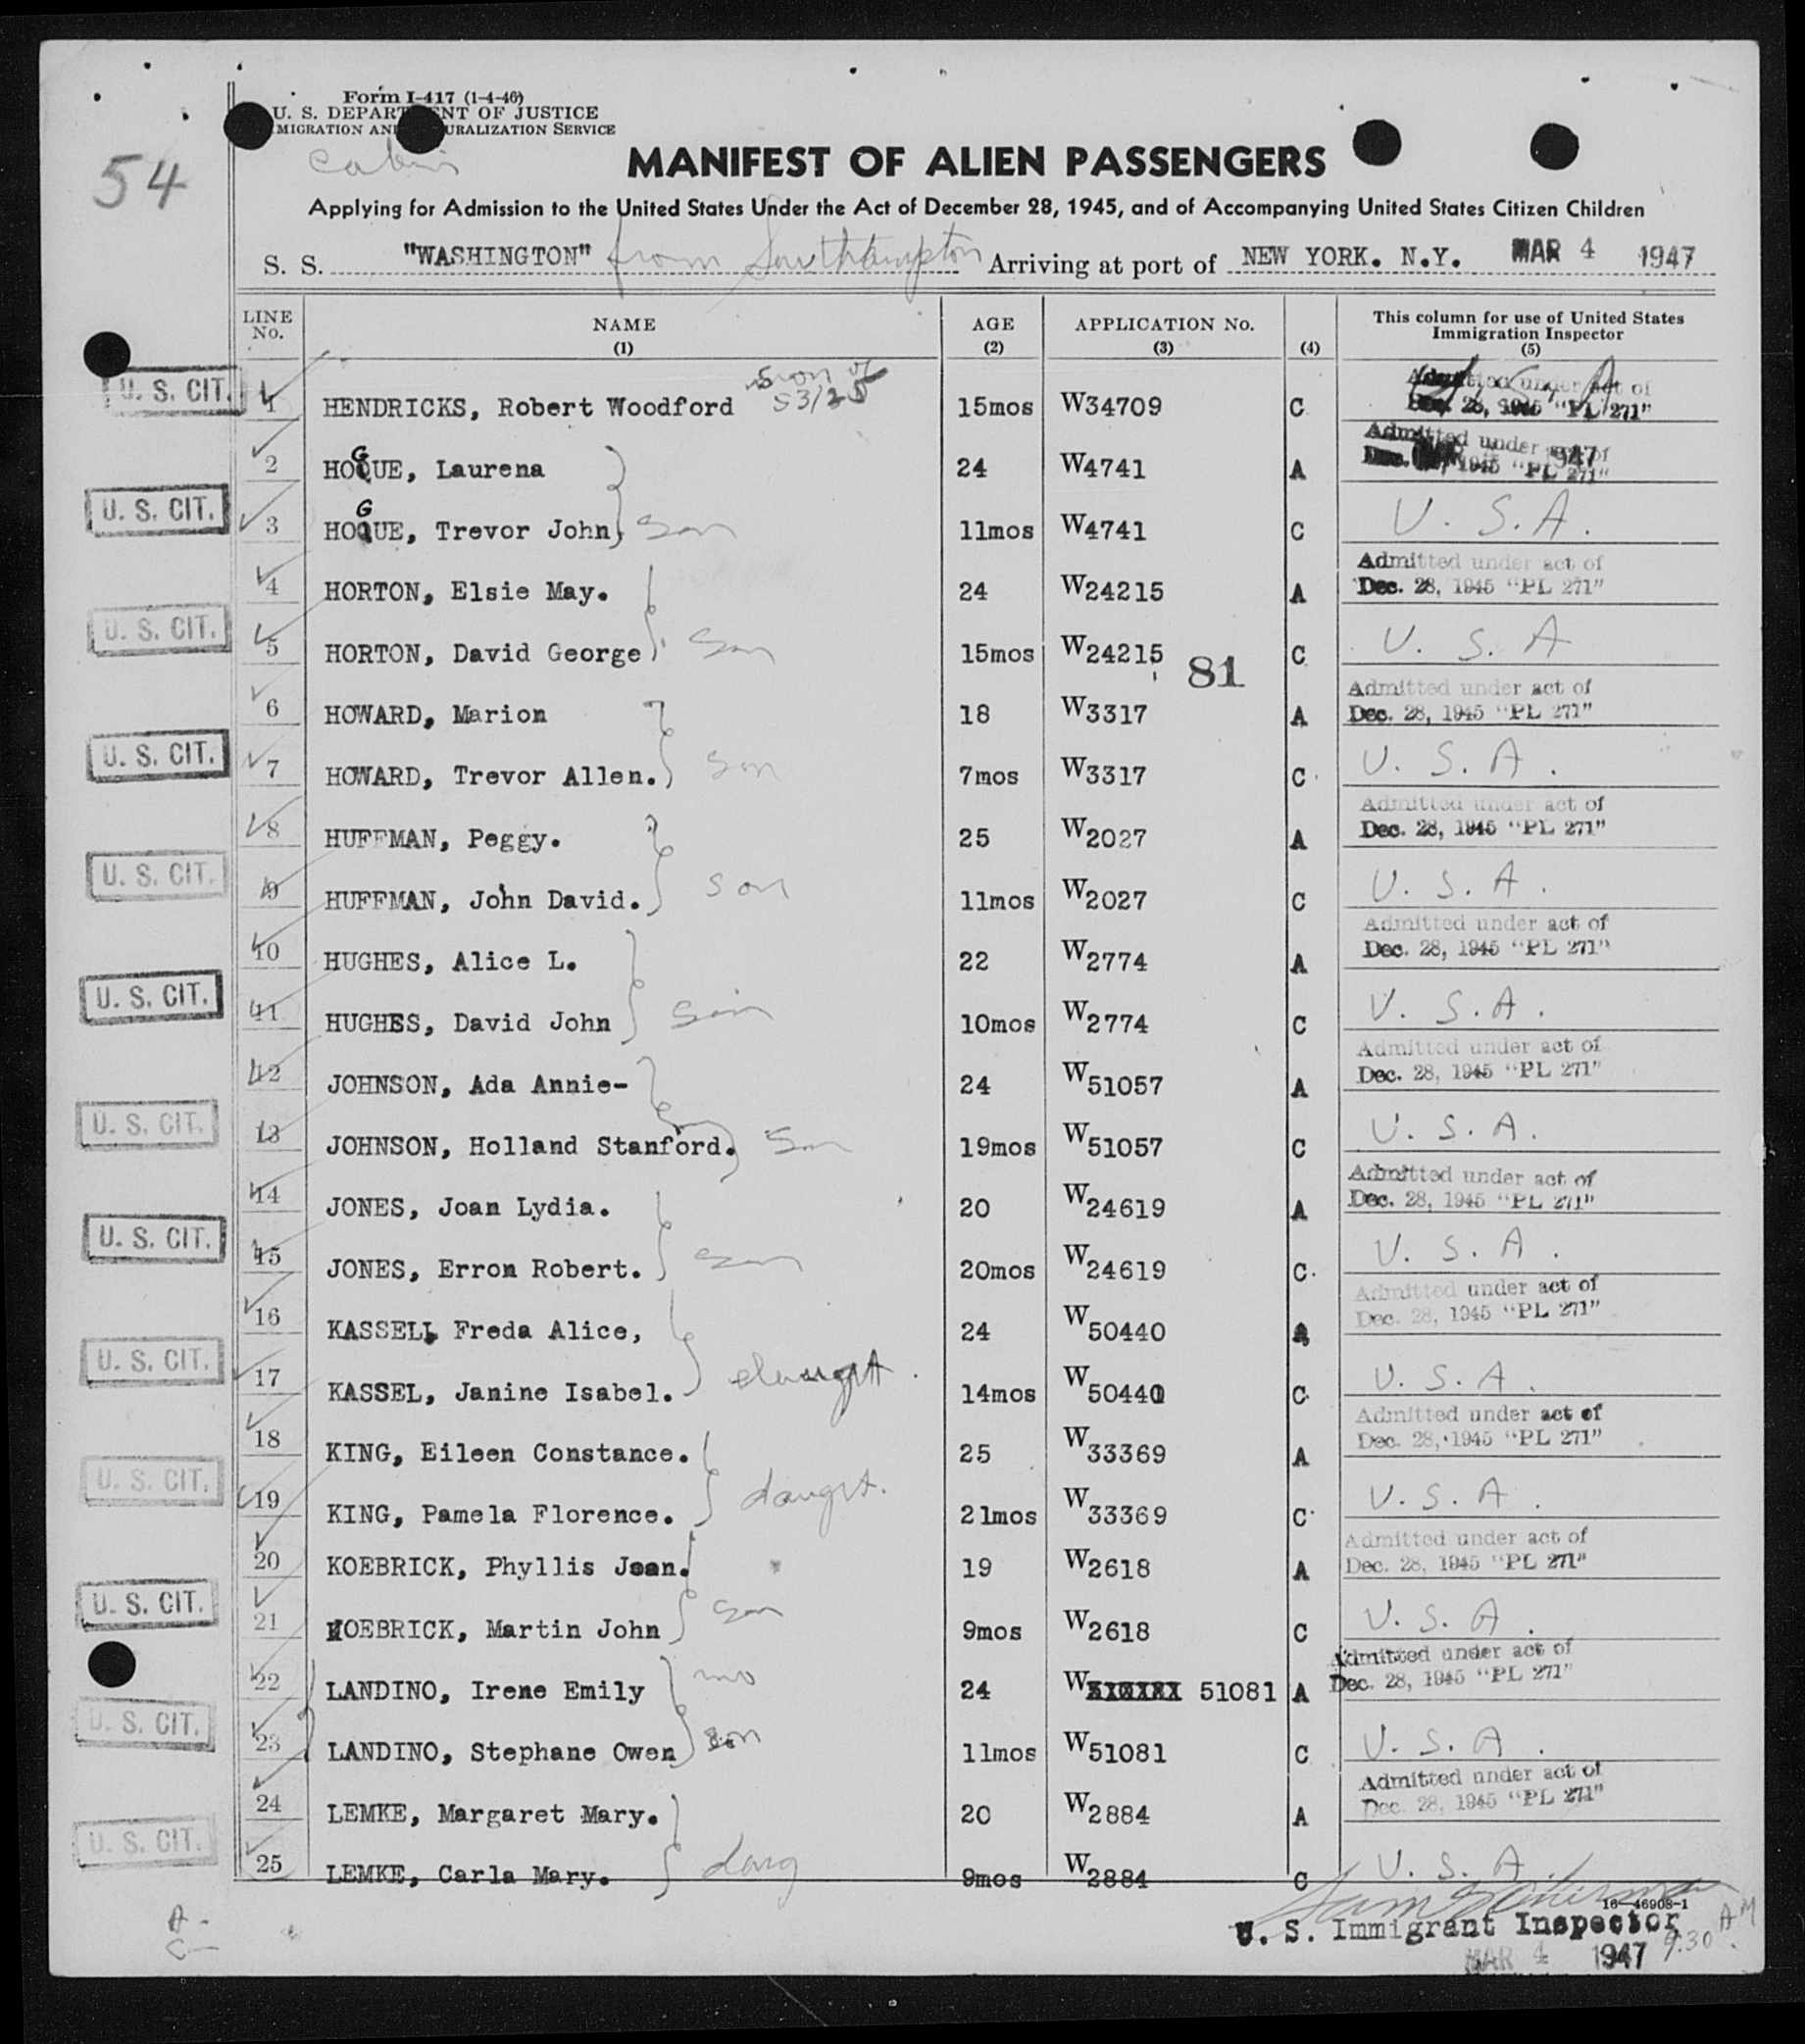 Form I-417 (1-4-46)
U. S. DEPARTMENT OF JUSTICE
IMMIGRATION AND NATURALIZATION SERVICE
54
cabin
MANIFEST OF ALIEN PASSENGERS
Applying for Admission to the United States Under the Act of December 28, 1945, and of Accompanying United States Citizen Children
S. S. "WASHINGTON" from Southampton Arriving at port of NEW YORK. N.Y. MAR 4 1947
LINE No. NAME (1) AGE (2) APPLICATION No. (3) (4) This column for use of United States Immigration Inspector (5)
U. S. CIT. 1 HENDRICKS, Robert Woodford son of 53/25 15mos W34709 C Admitted under act of Dec. 28, 1945 "PL 271" U.S.A
2 HOGUE, Laurena 24 W4741 A Admitted under act of Dec. 28, 1945 "PL 271" 1947
U. S. CIT. 3 HOGUE, Trevor John son 11mos W4741 C U.S.A.
4 HORTON, Elsie May. 24 W24215 A Admitted under act of Dec. 28, 1945 "PL 271"
U. S. CIT. 5 HORTON, David George son 15mos W24215 C U.S.A
81
6 HOWARD, Marion 18 W3317 A Admitted under act of Dec. 28, 1945 "PL 271"
U. S. CIT. 7 HOWARD, Trevor Allen. son 7mos W3317 C U.S.A.
8 HUFFMAN, Peggy. 25 W2027 A Admitted under act of Dec. 28, 1945 "PL 271"
U. S. CIT. 9 HUFFMAN, John David. son 11mos W2027 C U.S.A.
10 HUGHES, Alice L. 22 W2774 A Admitted under act of Dec. 28, 1945 "PL 271"
U. S. CIT. 11 HUGHES, David John son 10mos W2774 C U.S.A.
12 JOHNSON, Ada Annie- 24 W51057 A Admitted under act of Dec. 28, 1945 "PL 271"
U. S. CIT. 13 JOHNSON, Holland Stanford. son 19mos W51057 C U.S.A.
14 JONES, Joan Lydia. 20 W24619 A Admitted under act of Dec. 28, 1945 "PL 271"
U. S. CIT. 15 JONES, Erron Robert. son 20mos W24619 C. U.S.A.
16 KASSEL, Freda Alice, 24 W50440 A Admitted under act of Dec. 28, 1945 "PL 271"
U. S. CIT. 17 KASSEL, Janine Isabel. daught. 14mos W50440 C. U.S.A.
18 KING, Eileen Constance. 25 W33369 A Admitted under act of Dec. 28, 1945 "PL 271"
U. S. CIT. 19 KING, Pamela Florence. daught. 21mos W33369 C U.S.A.
20 KOEBRICK, Phyllis Jean. 19 W2618 A Admitted under act of Dec. 28, 1945 "PL 271"
U. S. CIT. 21 KOEBRICK, Martin John son 9mos W2618 C U.S.A.
22 LANDINO, Irene Emily mo 24 W 51081 A Admitted under act of Dec. 28, 1945 "PL 271"
U. S. CIT. 23 LANDINO, Stephane Owen son 11mos W51081 C U.S.A.
24 LEMKE, Margaret Mary. 20 W2884 A Admitted under act of Dec. 28, 1945 "PL 271"
U. S. CIT. 25 LEMKE, Carla Mary. daug 9mos W2884 C U.S.A.
16—46908-1
A -
C -
U. S. Immigrant Inspector
MAR 4 1947 9:30 AM